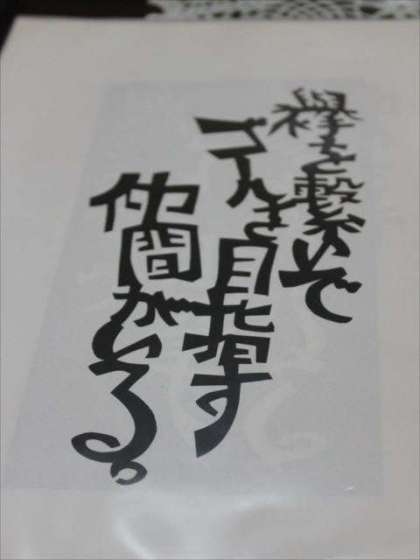 襷を繋いで
ゴールを目指す
仲間がいる。